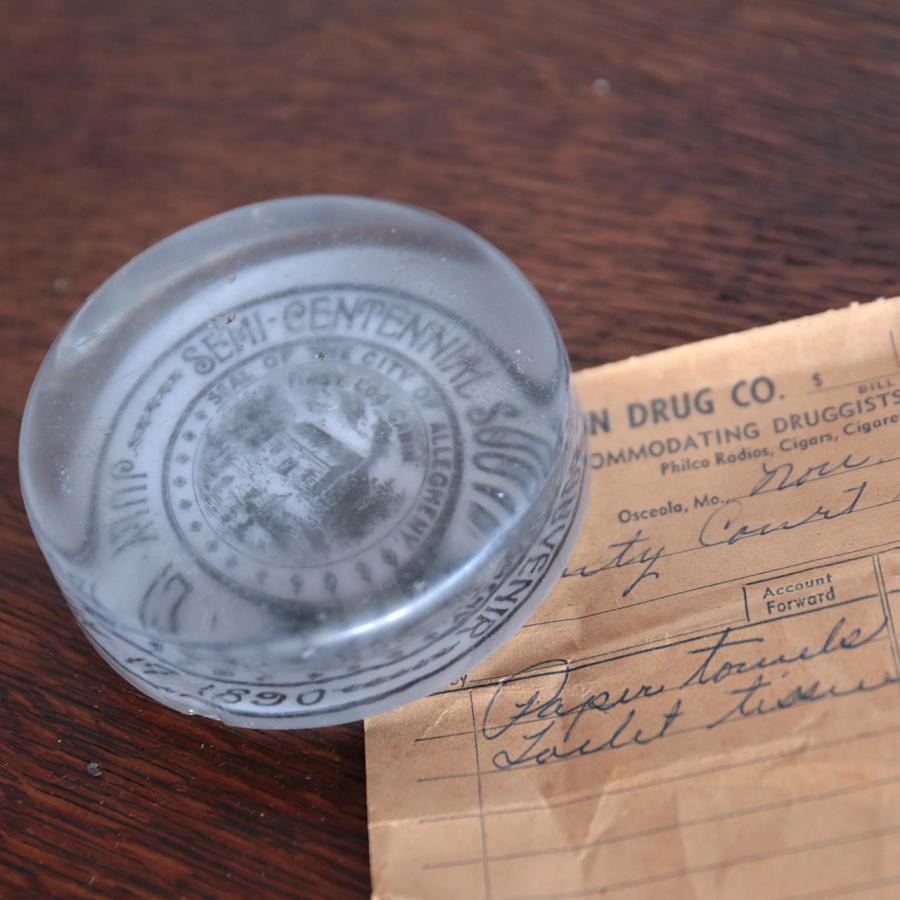 SEMI-CENTENNIAL SOUVENIR
SEAL OF THE CITY OF ALLEGHENY.
FIRST LOG CABIN
JULY
17 1890
N DRUG CO. $
BILL
OMMODATING DRUGGISTS
Philco Radios, Cigars, Cigare
Osceola, Mo., Nov.
nty Court
Account
Forward
Paper towels
Toilet tissue